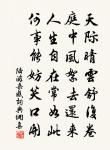 天際晴雲舒復卷
庭中風絮去還來
人生自在常如此
何事能妨笑口開
陸游杂感詞典網集